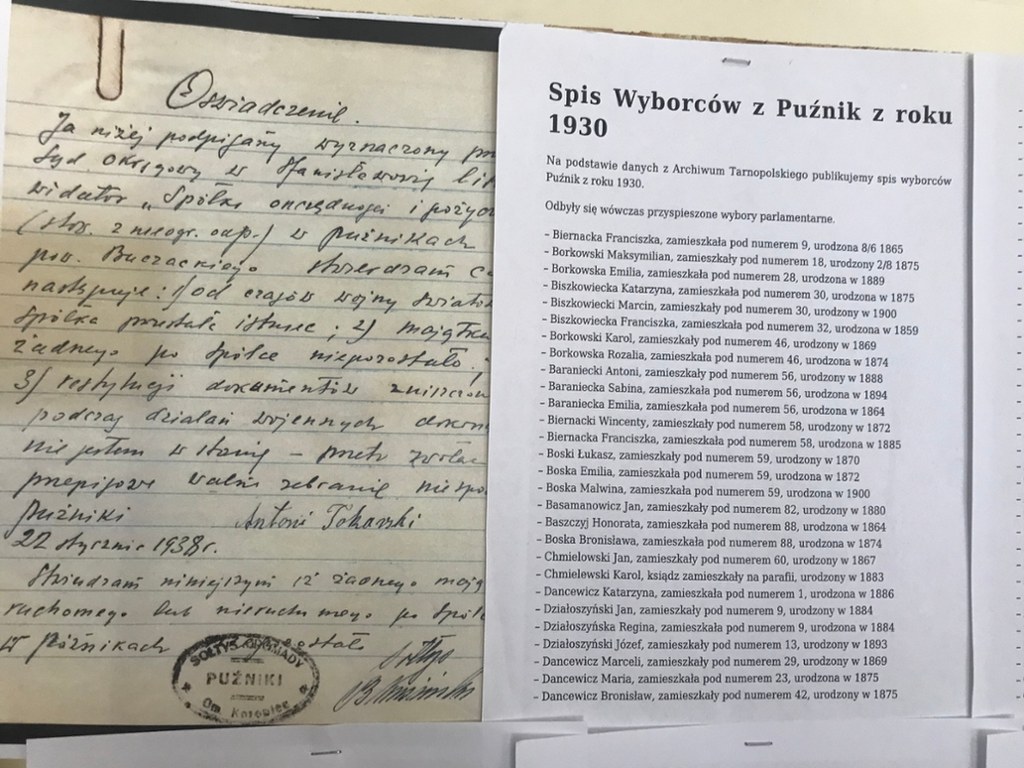 Oświadczenie.
Ja niżej podpisany wyznaczony
Sąd Okręgowy w Stanisławowie
widator „Spółki oszczędności i
(stow. z nieogr. odp.) w Puźnikach
pow. Buczackiego stwierdzam
następuje: 1) od czasów wojny
spółka przestała istnieć; 2)
żadnego po spółce niepozostało;
3) restytucji dokumentów
podczas działań wojennych
nie jestem w stanie –
przepisowe walne zebranie
Puźniki Antoni Tokarski
22 stycznia 1938 r.
Stwierdzam niniejszym iż żadnego
ruchomego lub nieruchomego po
w Puźnikach
SOŁTYS GROMADY
PUŹNIKI
Gm. Koropiec
Spis Wyborców z Puźnik z roku
1930
Na podstawie danych z Archiwum Tarnopolskiego publikujemy spis wyborców
Puźnik z roku 1930.
Odbyły się wówczas przyspieszone wybory parlamentarne.
– Biernacka Franciszka, zamieszkała pod numerem 9, urodzona 8/6 1865
– Borkowski Maksymilian, zamieszkały pod numerem 18, urodzony 2/8 1875
– Borkowska Emilia, zamieszkała pod numerem 28, urodzona w 1889
– Biszkowiecka Katarzyna, zamieszkała pod numerem 30, urodzona w 1875
– Biszkowiecki Marcin, zamieszkały pod numerem 30, urodzony w 1900
– Biszkowiecka Franciszka, zamieszkała pod numerem 32, urodzona w 1859
– Borkowski Karol, zamieszkały pod numerem 46, urodzony w 1869
– Borkowska Rozalia, zamieszkała pod numerem 46, urodzona w 1874
– Baraniecki Antoni, zamieszkały pod numerem 56, urodzony w 1888
– Baraniecka Sabina, zamieszkała pod numerem 56, urodzona w 1894
– Baraniecka Emilia, zamieszkała pod numerem 56, urodzona w 1864
– Biernacki Wincenty, zamieszkały pod numerem 58, urodzony w 1872
– Biernacka Franciszka, zamieszkała pod numerem 58, urodzona w 1885
– Boski Łukasz, zamieszkały pod numerem 59, urodzony w 1870
– Boska Emilia, zamieszkała pod numerem 59, urodzona w 1872
– Boska Malwina, zamieszkała pod numerem 59, urodzona w 1900
– Basamanowicz Jan, zamieszkały pod numerem 82, urodzony w 1880
– Baszczyj Honorata, zamieszkała pod numerem 88, urodzona w 1864
– Boska Bronisława, zamieszkała pod numerem 88, urodzona w 1874
– Chmielowski Jan, zamieszkały pod numerem 60, urodzony w 1867
– Chmielewski Karol, ksiądz zamieszkały na parafii, urodzony w 1883
– Dancewicz Katarzyna, zamieszkała pod numerem 1, urodzona w 1886
– Działoszyński Jan, zamieszkały pod numerem 9, urodzony w 1884
– Działoszyńska Regina, zamieszkała pod numerem 9, urodzona w 1884
– Działoszyński Józef, zamieszkały pod numerem 13, urodzony w 1893
– Dancewicz Marceli, zamieszkały pod numerem 29, urodzony w 1869
– Dancewicz Maria, zamieszkała pod numerem 23, urodzona w 1875
– Dancewicz Bronisław, zamieszkały pod numerem 42, urodzony w 1875